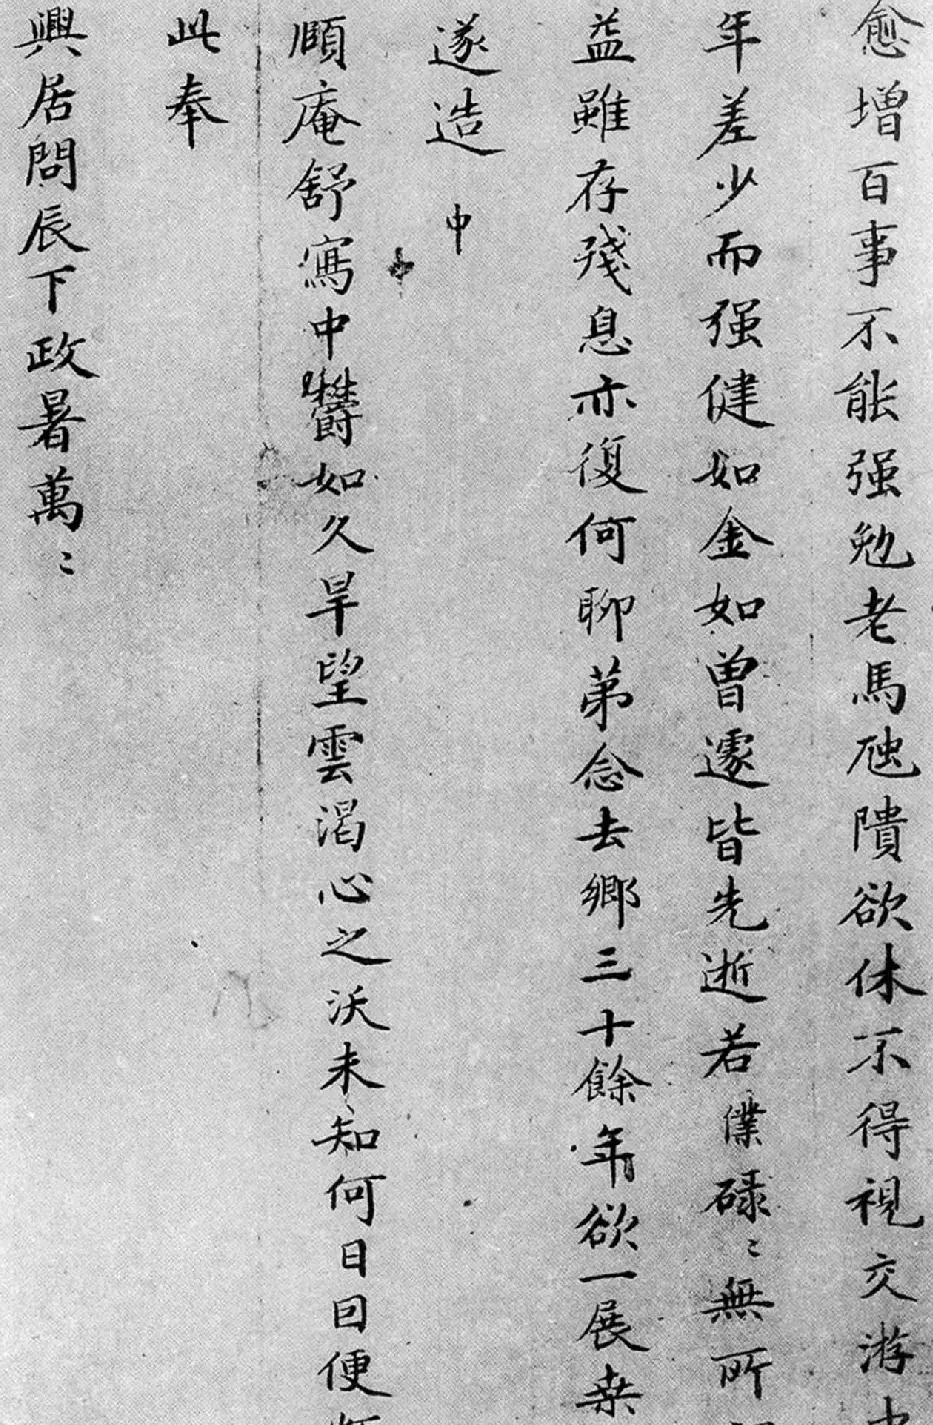 愈增百事不能强勉老馬虺隤欲休不得視交游中
年差少而强健如金如曾遽皆先逝若僕碌〻無所
益雖存殘息亦復何聊第念去鄉三十餘年欲一展桒
遂造
中
頤庵舒寫中欝如久旱望雲渴心之沃未知何日回便
此奉
興居問辰下政暑萬〻